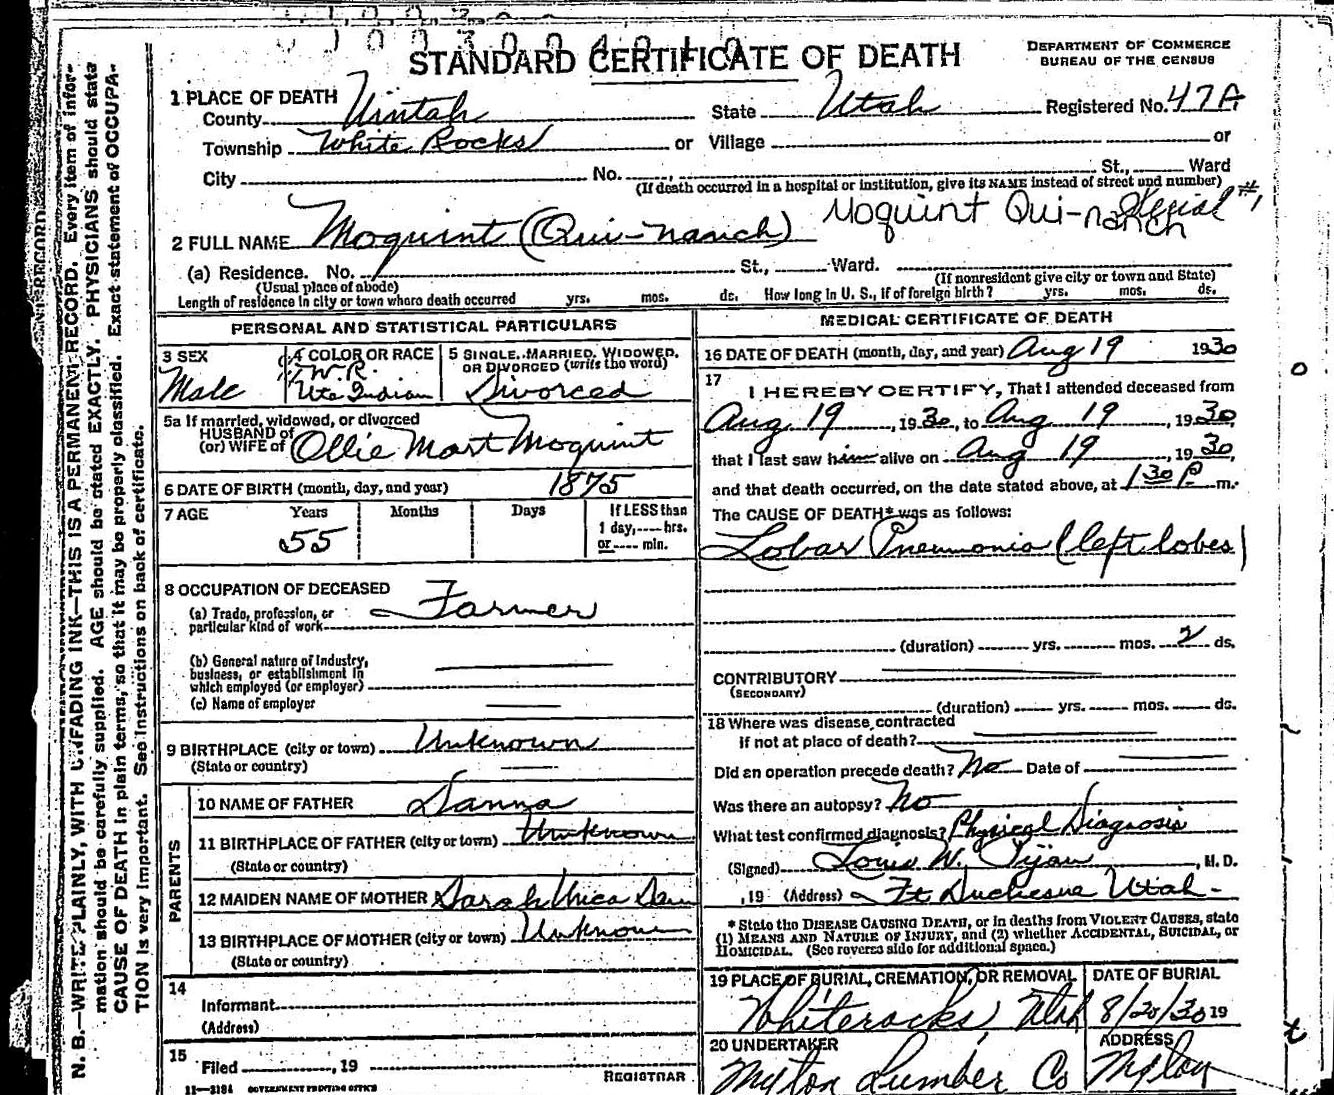 STANDARD CERTIFICATE OF DEATH
DEPARTMENT OF COMMERCE
BUREAU OF THE CENSUS
1 PLACE OF DEATH
County Uintah State Utah Registered No. 47A
Township White Rocks or Village or
City No. St., Ward
(If death occurred in a hospital or institution, give its NAME instead of street and number)
Moquint Qui-nanch #1
2 FULL NAME Moquint (Qui-nanch)
(a) Residence. No. St., Ward.
(Usual place of abode) (If nonresident give city or town and State)
Length of residence in city or town where death occurred yrs. mos. ds. How long in U. S., if of foreign birth? yrs. mos. ds.
PERSONAL AND STATISTICAL PARTICULARS
3 SEX
Male
4 COLOR OR RACE
W.R.
Ute Indian
5 SINGLE, MARRIED, WIDOWED,
OR DIVORCED (write the word)
Divorced
5a If married, widowed, or divorced
HUSBAND of
(or) WIFE of Ollie Mart Moquint
6 DATE OF BIRTH (month, day, and year) 1875
7 AGE Years Months Days If LESS than
1 day,----hrs.
or----min.
55
8 OCCUPATION OF DECEASED
(a) Trade, profession, or
particular kind of work Farmer
(b) General nature of industry,
business, or establishment in
which employed (or employer)
(c) Name of employer
9 BIRTHPLACE (city or town) Unknown
(State or country)
PARENTS
10 NAME OF FATHER Danna
11 BIRTHPLACE OF FATHER (city or town) Unknown
(State or country)
12 MAIDEN NAME OF MOTHER Sarah
13 BIRTHPLACE OF MOTHER (city or town) Unknown
(State or country)
14
Informant
(Address)
15
Filed , 19
REGISTRAR
11—3184 GOVERNMENT PRINTING OFFICE
MEDICAL CERTIFICATE OF DEATH
16 DATE OF DEATH (month, day, and year) Aug 19 1930
17
I HEREBY CERTIFY, That I attended deceased from
Aug 19, 1930, to Aug 19, 1930,
that I last saw him alive on Aug 19, 1930,
and that death occurred, on the date stated above, at 1 30 P m.
The CAUSE OF DEATH* was as follows:
Lobar Pneumonia (left lobes)
(duration) yrs. mos. 2 ds.
CONTRIBUTORY
(SECONDARY)
(duration) yrs. mos. ds.
18 Where was disease contracted
if not at place of death?
Did an operation precede death? No Date of
Was there an autopsy? No
What test confirmed diagnosis? Physical Diagnosis
(Signed) Louis W. , M. D.
, 19 (Address) Ft Duchesne Utah
* State the DISEASE CAUSING DEATH, or in deaths from VIOLENT CAUSES, state
(1) MEANS AND NATURE OF INJURY, and (2) whether ACCIDENTAL, SUICIDAL, or
HOMICIDAL. (See reverse side for additional space.)
19 PLACE OF BURIAL, CREMATION, OR REMOVAL
Whiterocks, Utah
DATE OF BURIAL
8/20/30 19
20 UNDERTAKER
Myton Lumber Co
ADDRESS
Myton
N. B.—WRITE PLAINLY, WITH UNFADING INK—THIS IS A PERMANENT RECORD. Every item of infor-
mation should be carefully supplied. AGE should be stated EXACTLY. PHYSICIANS should state
CAUSE OF DEATH in plain terms, so that it may be properly classified. Exact statement of OCCUPA-
TION is very important. See instructions on back of certificate.